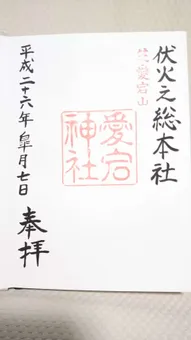 伏火之総本社
愛宕山
愛宕
神社
奉拝
平成二十六年皐月七日